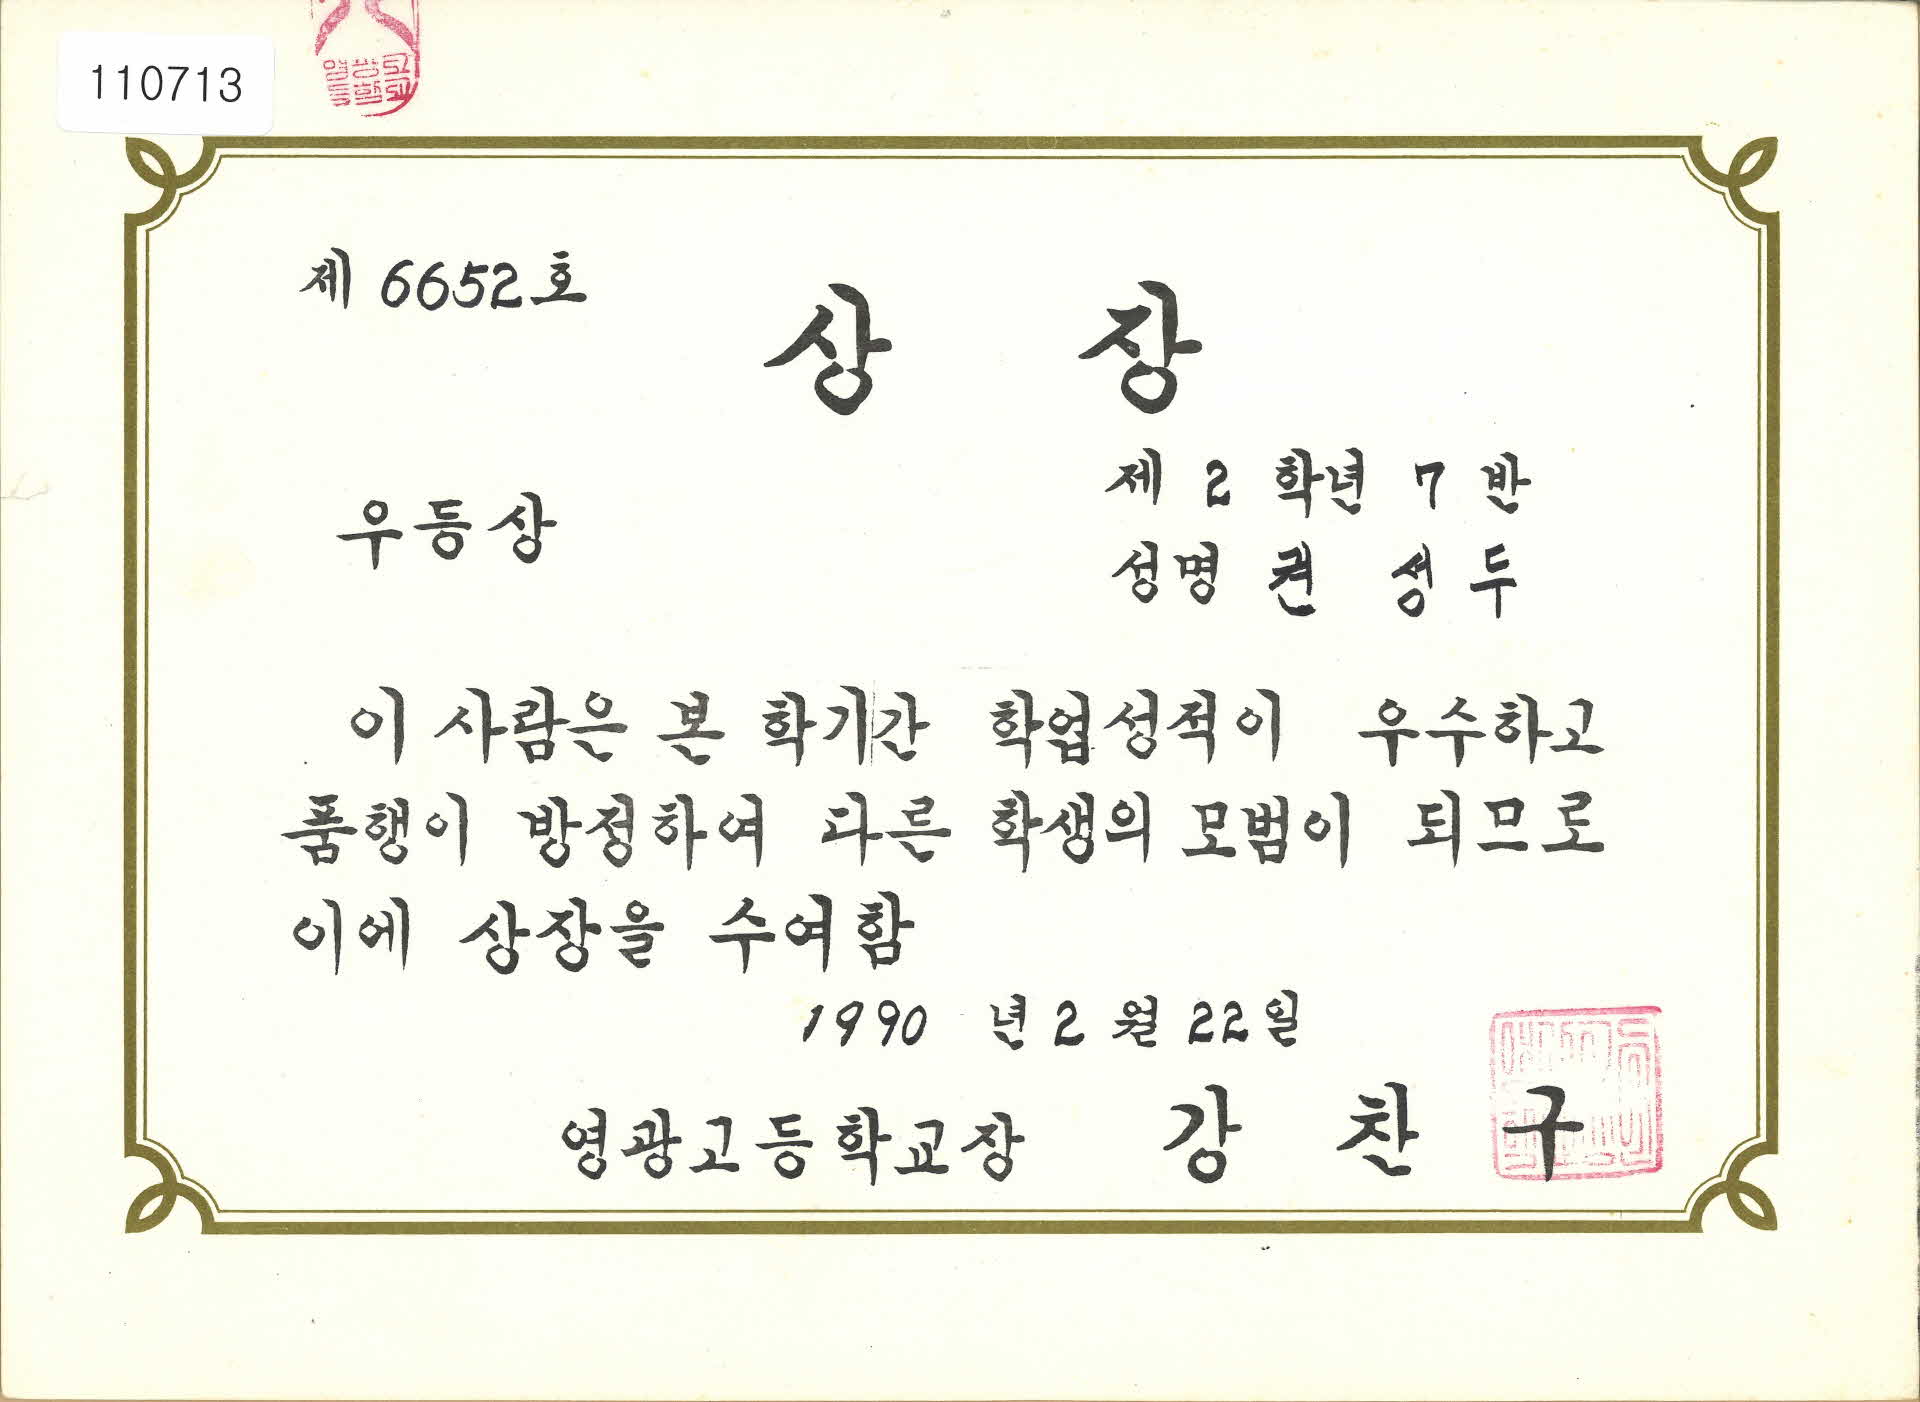 110713
제 6652 호
상 장
제 2 학년 7 반
우등상
성명 권 성 두
이 사람은 본 학기간 학업성적이 우수하고
품행이 방정하여 다른 학생의 모범이 되므로
이에 상장을 수여함
1990 년 2 월 22 일
영광고등학교장 강 찬 구